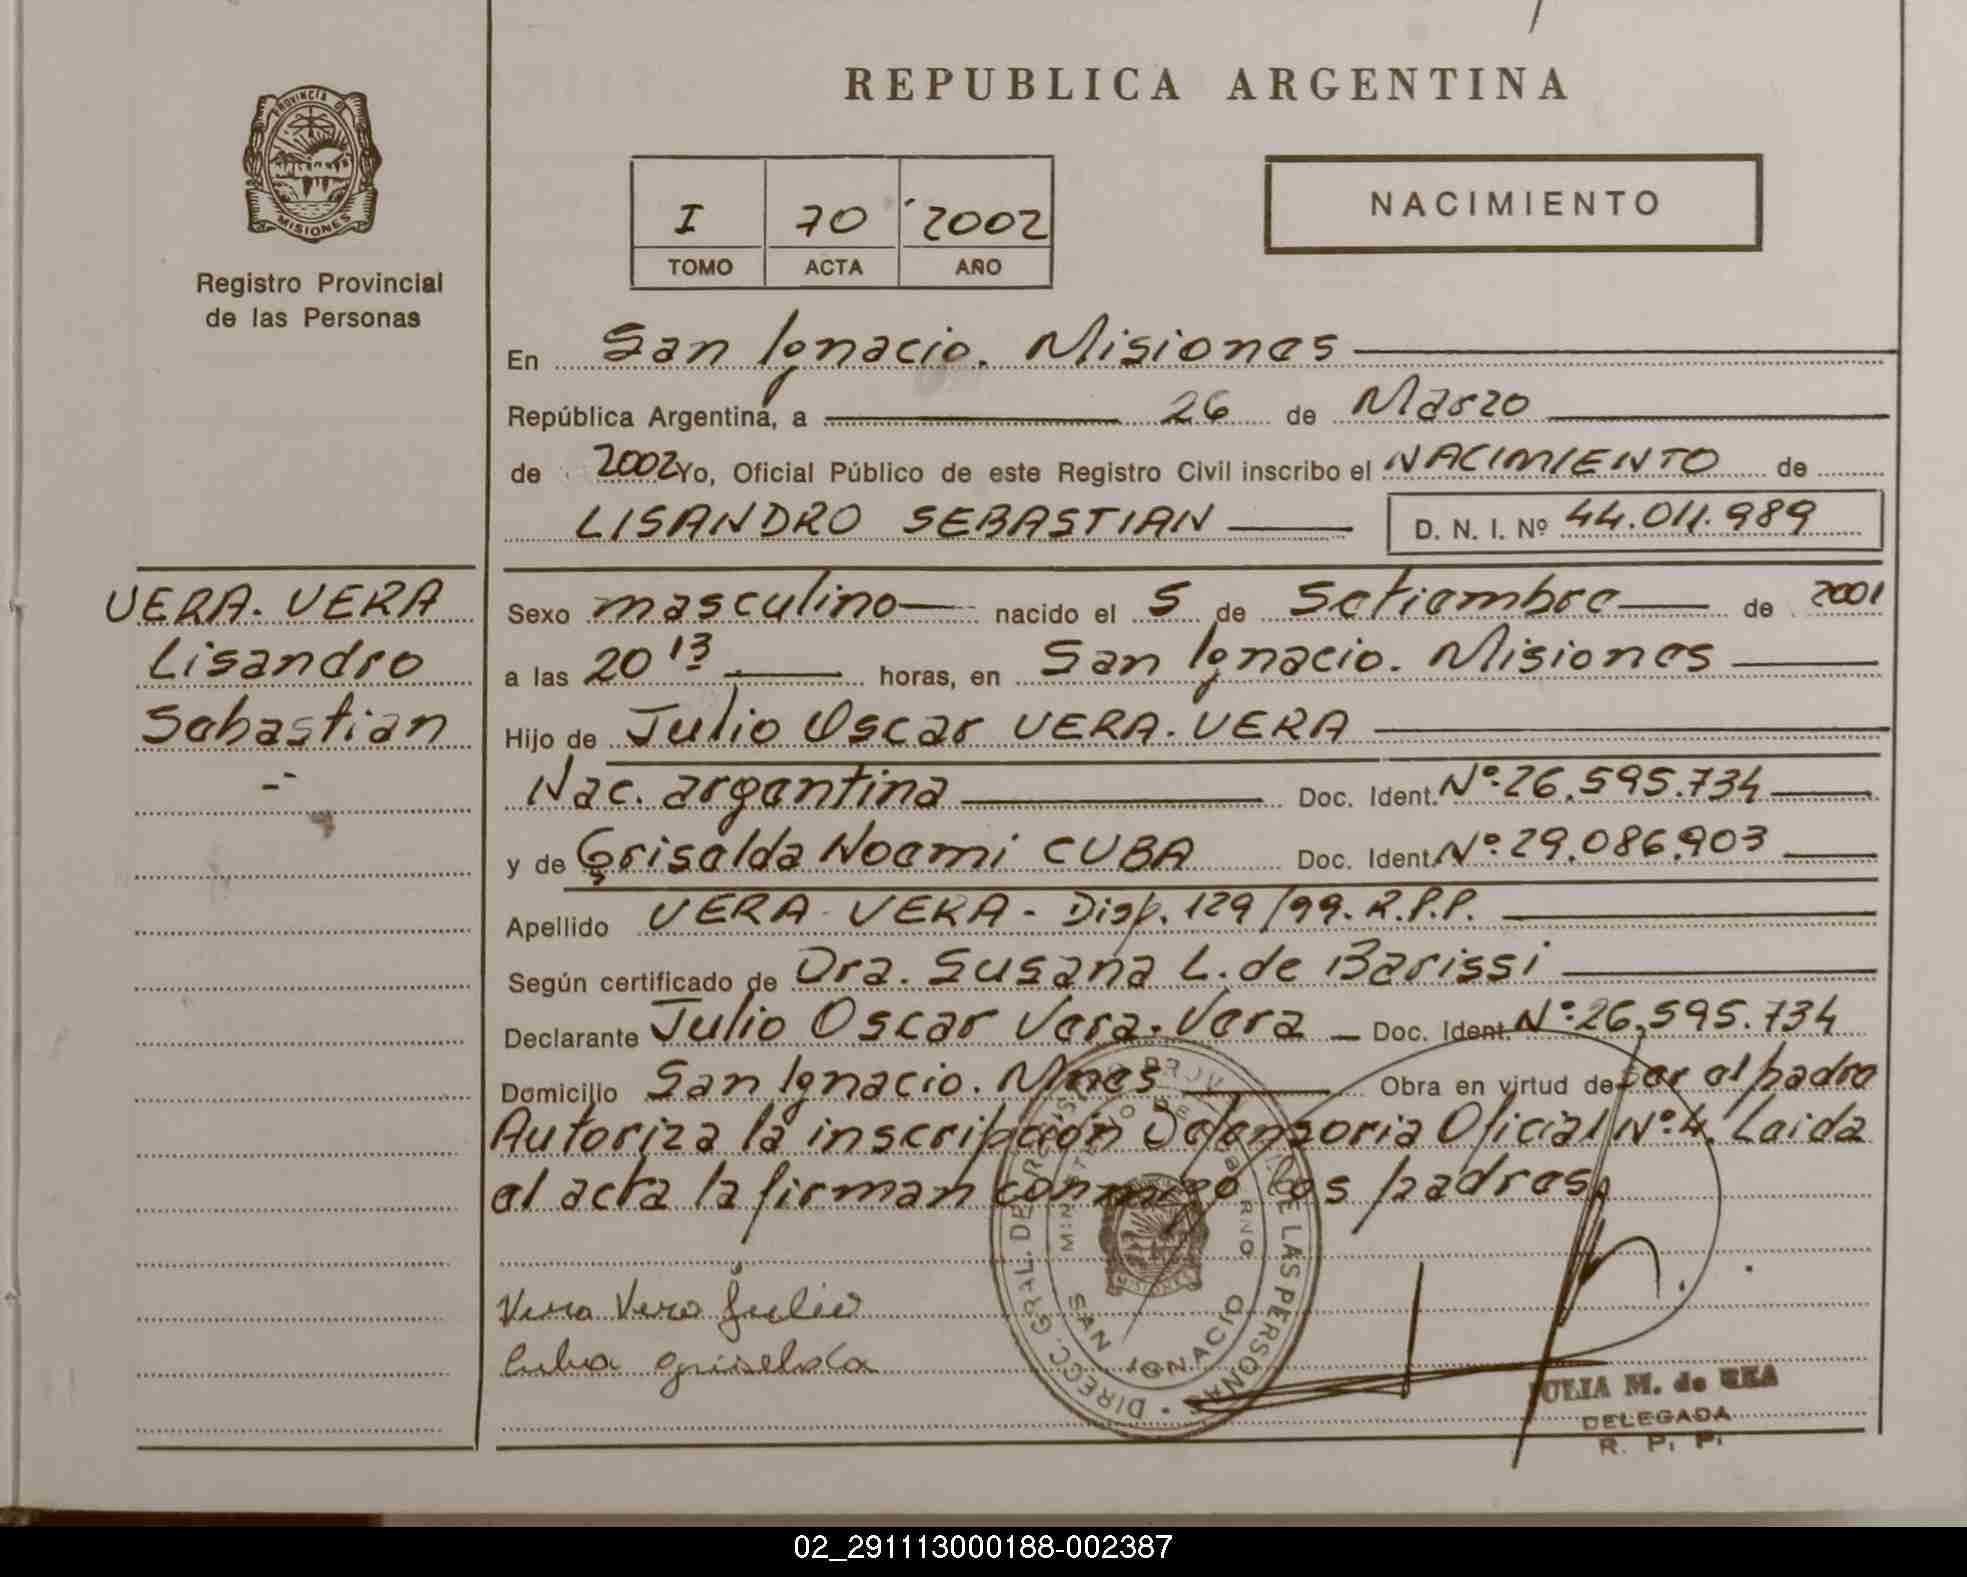 REPUBLICA ARGENTINA
PROVINCIA DE
MISIONES
Registro Provincial
de las Personas
I 70 2002
TOMO ACTA AÑO
NACIMIENTO
En San Ignacio. Misiones
República Argentina, a 26 de Marzo
de 2002 Yo, Oficial Público de este Registro Civil inscribo el NACIMIENTO de
LISANDRO SEBASTIAN D. N. I. Nº 44.011.989
VERA. VERA
Lisandro
Sebastian
Sexo masculino nacido el 5 de Setiembre de 2001
a las 20 13 horas, en San Ignacio. Misiones
Hijo de Julio Oscar VERA. VERA
Nac. argentina Doc. Ident. Nº: 26.595.734
y de Griselda Noemi CUBA Doc. Ident. Nº: 29.086.903
Apellido VERA VERA - Disp. 129/99. R.P.P.
Según certificado de Dra. Susana L. de Barissi
Declarante Julio Oscar Vera. Vera Doc. Ident. Nº: 26.595.734
Domicilio San Ignacio. Mnes Obra en virtud de ser el padre
Autoriza la inscripción Defensoria Oficial Nº: 4. Leida
el acta la firman conmigo los padres.
Vera Vera Julio
Cuba Griselda
DIRECC. GRAL. DE REGISTRO PROV. DE LAS PERSONAS
MINISTERIO DE GOBIERNO
MISIONES
SAN IGNACIO
JULIA M. de REA
DELEGADA
R. P. P.
02_291113000188-002387